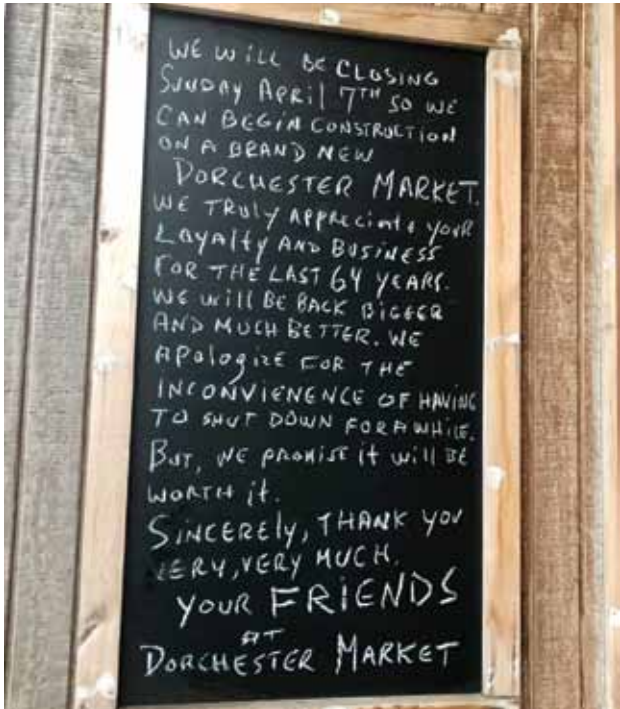 WE WILL BE CLOSING
SUNDAY APRIL 7TH SO WE
CAN BEGIN CONSTRUCTION
ON A BRAND NEW
DORCHESTER MARKET.
WE TRULY APPRECIATE YOUR
LOYALTY AND BUSINESS
FOR THE LAST 64 YEARS.
WE WILL BE BACK BIGGER
AND MUCH BETTER. WE
APOLOGIZE FOR THE
INCONVIENENCE OF HAVING
TO SHUT DOWN FOR AWHILE.
BUT, WE PROMISE IT WILL BE
WORTH IT.
SINCERELY, THANK YOU
VERY, VERY MUCH.
YOUR FRIENDS
AT
DORCHESTER MARKET